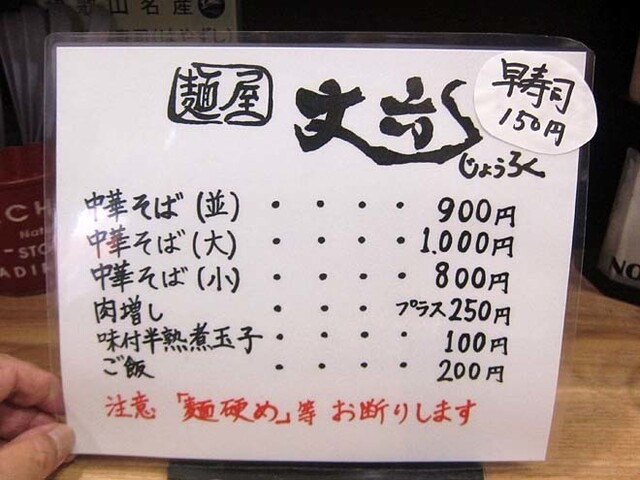 山名産
(はやずし)
麺屋
丈六
じょうろく
早寿司
150円
中華そば(並)・・・・900円
中華そば(大)・・・・1.000円
中華そば(小)・・・・800円
肉増し プラス250円
味付半熟煮玉子・・・・100円
ご飯・・・・200円
注意「麺硬め」等 お断りします
CH
Nat
-STO
ADIN
NO